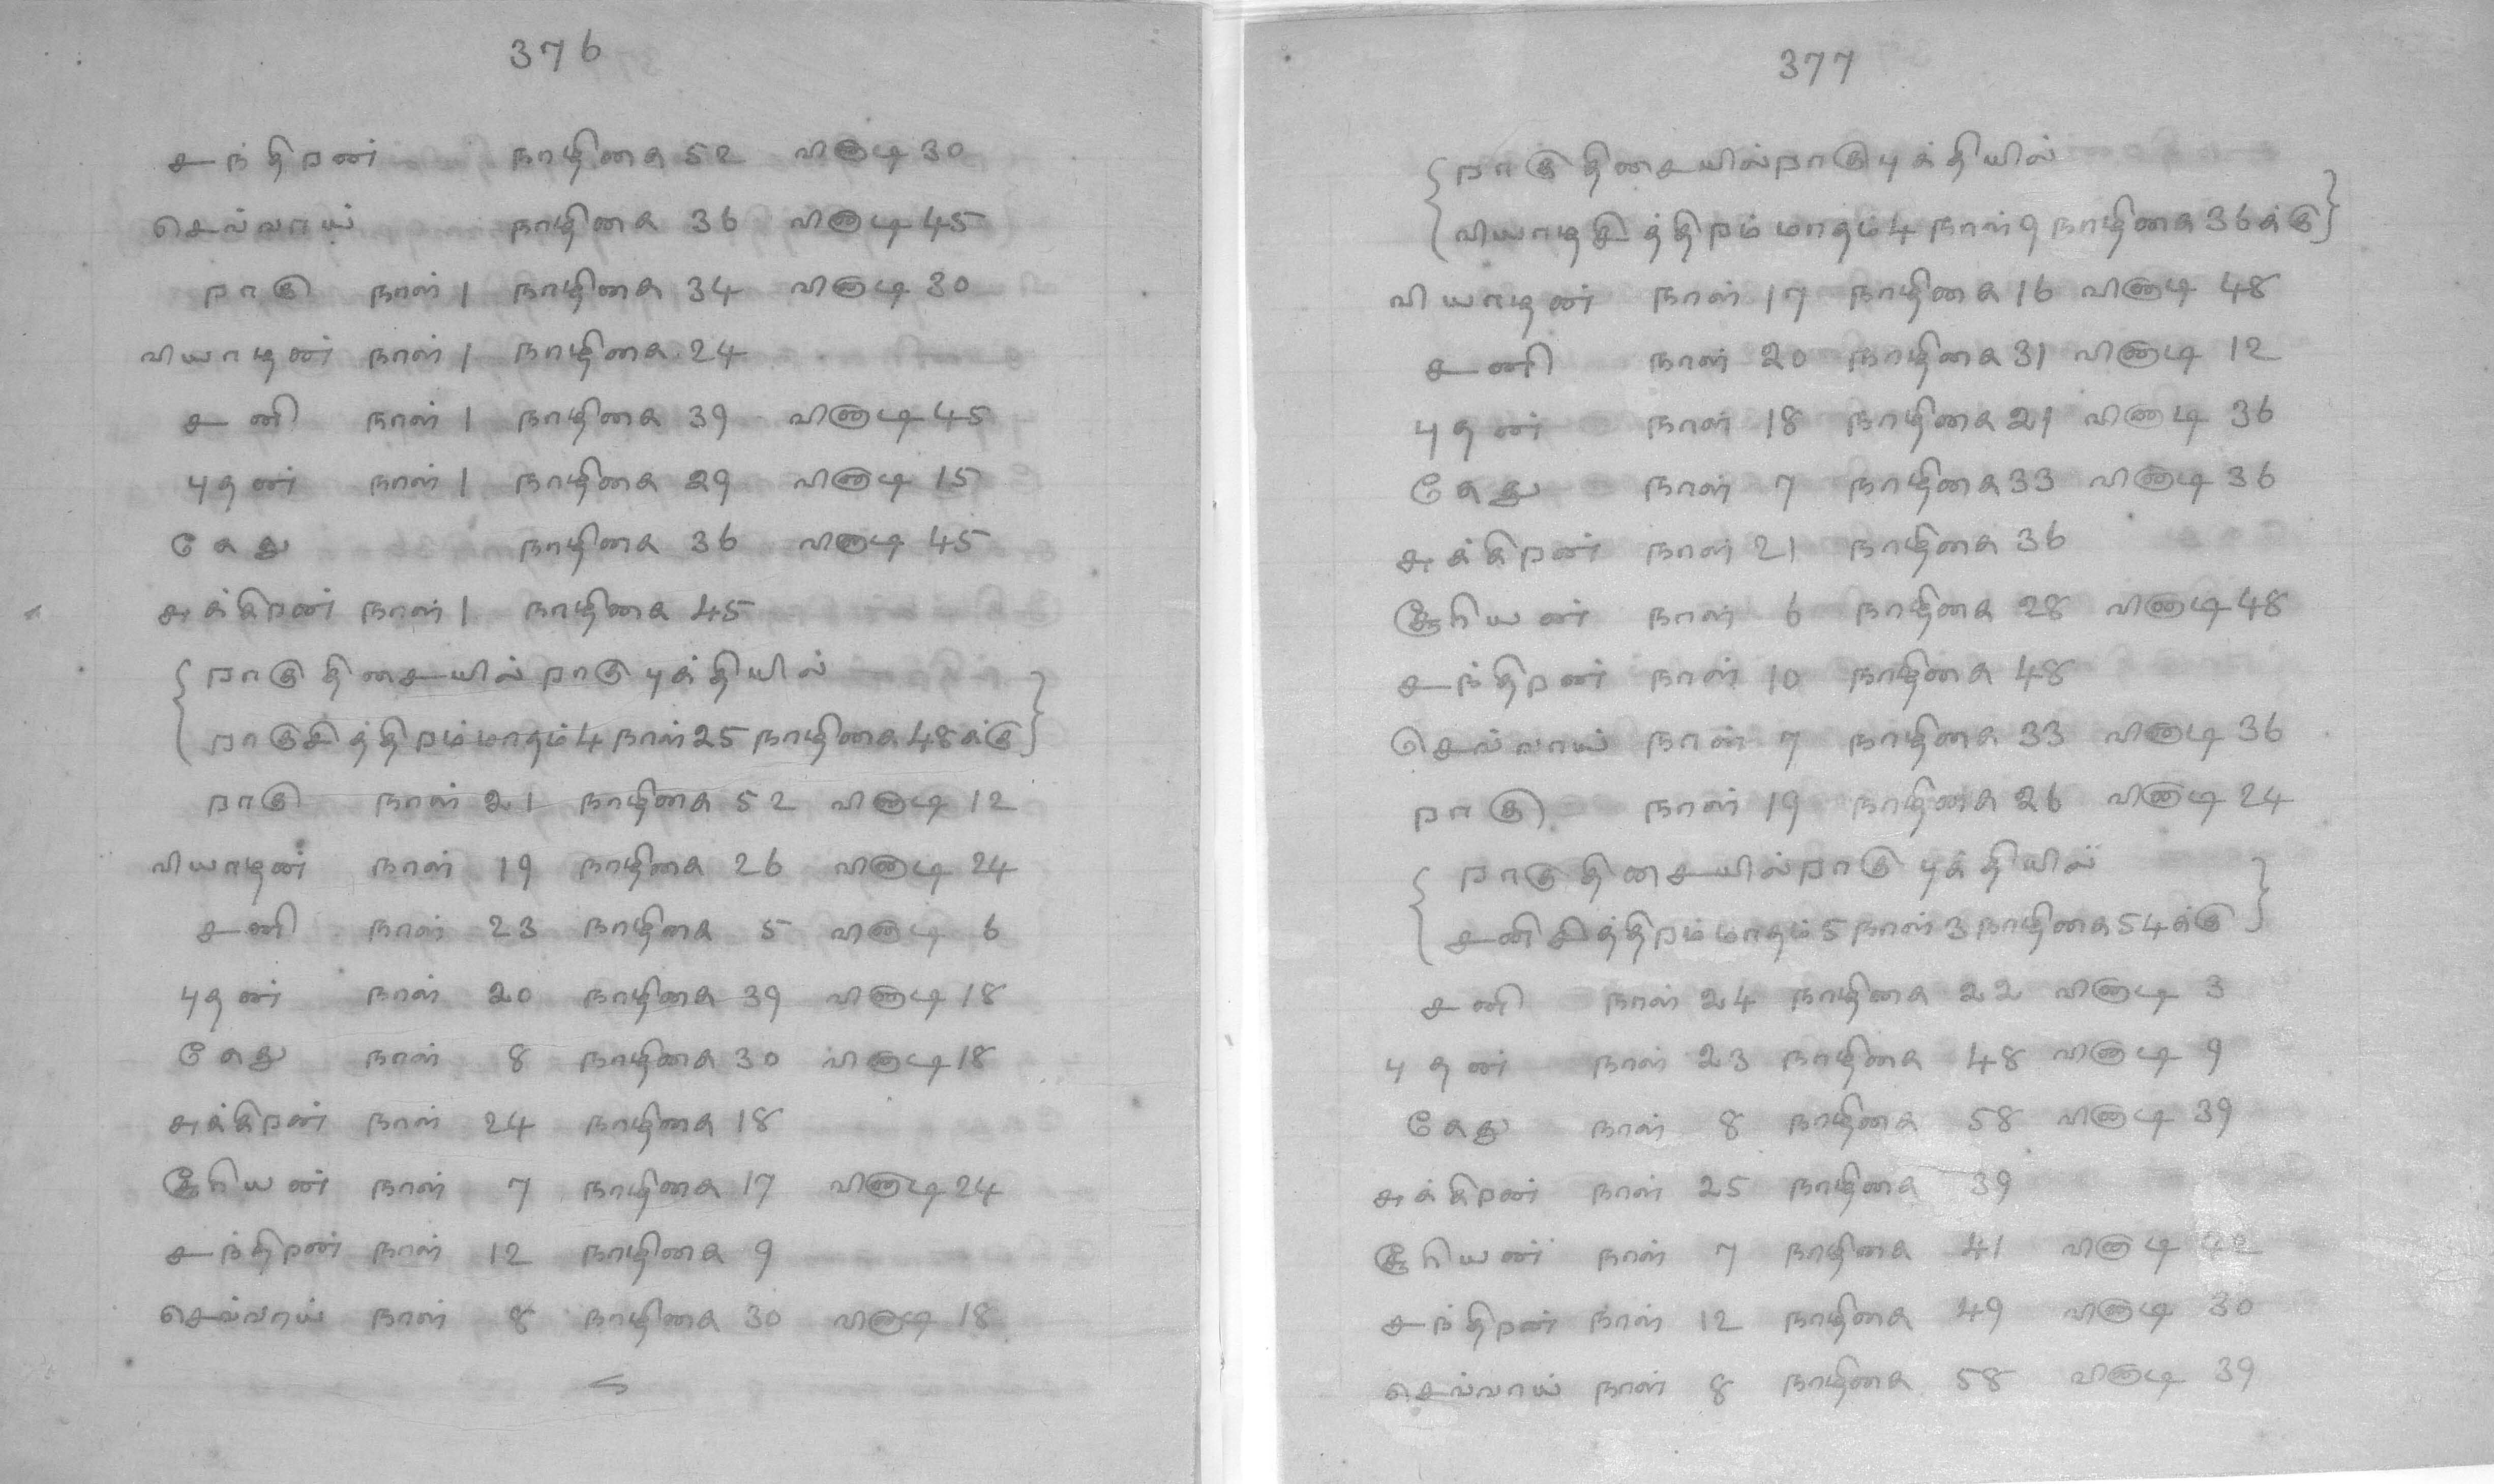 376
சந்திறன் நாழிகை 52 விநாடி 30
செவ்வாய் நாழிகை 36 விநாடி 45
றாகு நாள் 1 நாழிகை 34 விநாடி 30
வியாழன் நாள் 1 நாழிகை 24
சனி நாள் 1 நாழிகை 39 விநாடி 45
புதன் நாள் 1 நாழிகை 29 விநாடி 15
கேது நாழிகை 36 விநாடி 45
சுக்கிறன் நாள் 1 நாழிகை 45
{ றாகு திசையில் றாகு புக்தியில்
றாகுசித்திறம் மாதம் 4 நாள் 25 நாழிகை 48க்கு }
றாகு நாள் 21 நாழிகை 52 விநாடி 12
வியாழன் நாள் 19 நாழிகை 26 விநாடி 24
சனி நாள் 23 நாழிகை 5 விநாடி 6
புதன் நாள் 20 நாழிகை 39 விநாடி 18
கேது நாள் 8 நாழிகை 30 விநாடி 18
சுக்கிறன் நாள் 24 நாழிகை 18
சூரியன் நாள் 7 நாழிகை 17 விநாடி 24
சந்திறன் நாள் 12 நாழிகை 9
செவ்வாய் நாள் 8 நாழிகை 30 விநாடி 18
377
{ றாகு திசையில் றாகு புக்தியில்
வியாழசித்திறம் மாதம் 4 நாள் 9 நாழிகை 36க்கு }
வியாழன் நாள் 17 நாழிகை 16 விநாடி 48
சனி நாள் 20 நாழிகை 31 விநாடி 12
புதன் நாள் 18 நாழிகை 21 விநாடி 36
கேது நாள் 7 நாழிகை 33 விநாடி 36
சுக்கிறன் நாள் 21 நாழிகை 36
சூரியன் நாள் 6 நாழிகை 28 விநாடி 48
சந்திறன் நாள் 10 நாழிகை 48
செவ்வாய் நாள் 7 நாழிகை 33 விநாடி 36
றாகு நாள் 19 நாழிகை 26 விநாடி 24
{ றாகு திசையில் றாகு புக்தியில்
சனி சித்திறம் மாதம் 5 நாள் 3 நாழிகை 54க்கு }
சனி நாள் 24 நாழிகை 22 விநாடி 3
புதன் நாள் 23 நாழிகை 48 விநாடி 9
கேது நாள் 8 நாழிகை 58 விநாடி 39
சுக்கிறன் நாள் 25 நாழிகை 39
சூரியன் நாள் 7 நாழிகை 41 விநாடி 42
சந்திறன் நாள் 12 நாழிகை 49 விநாடி 30
செவ்வாய் நாள் 8 நாழிகை 58 விநாடி 39